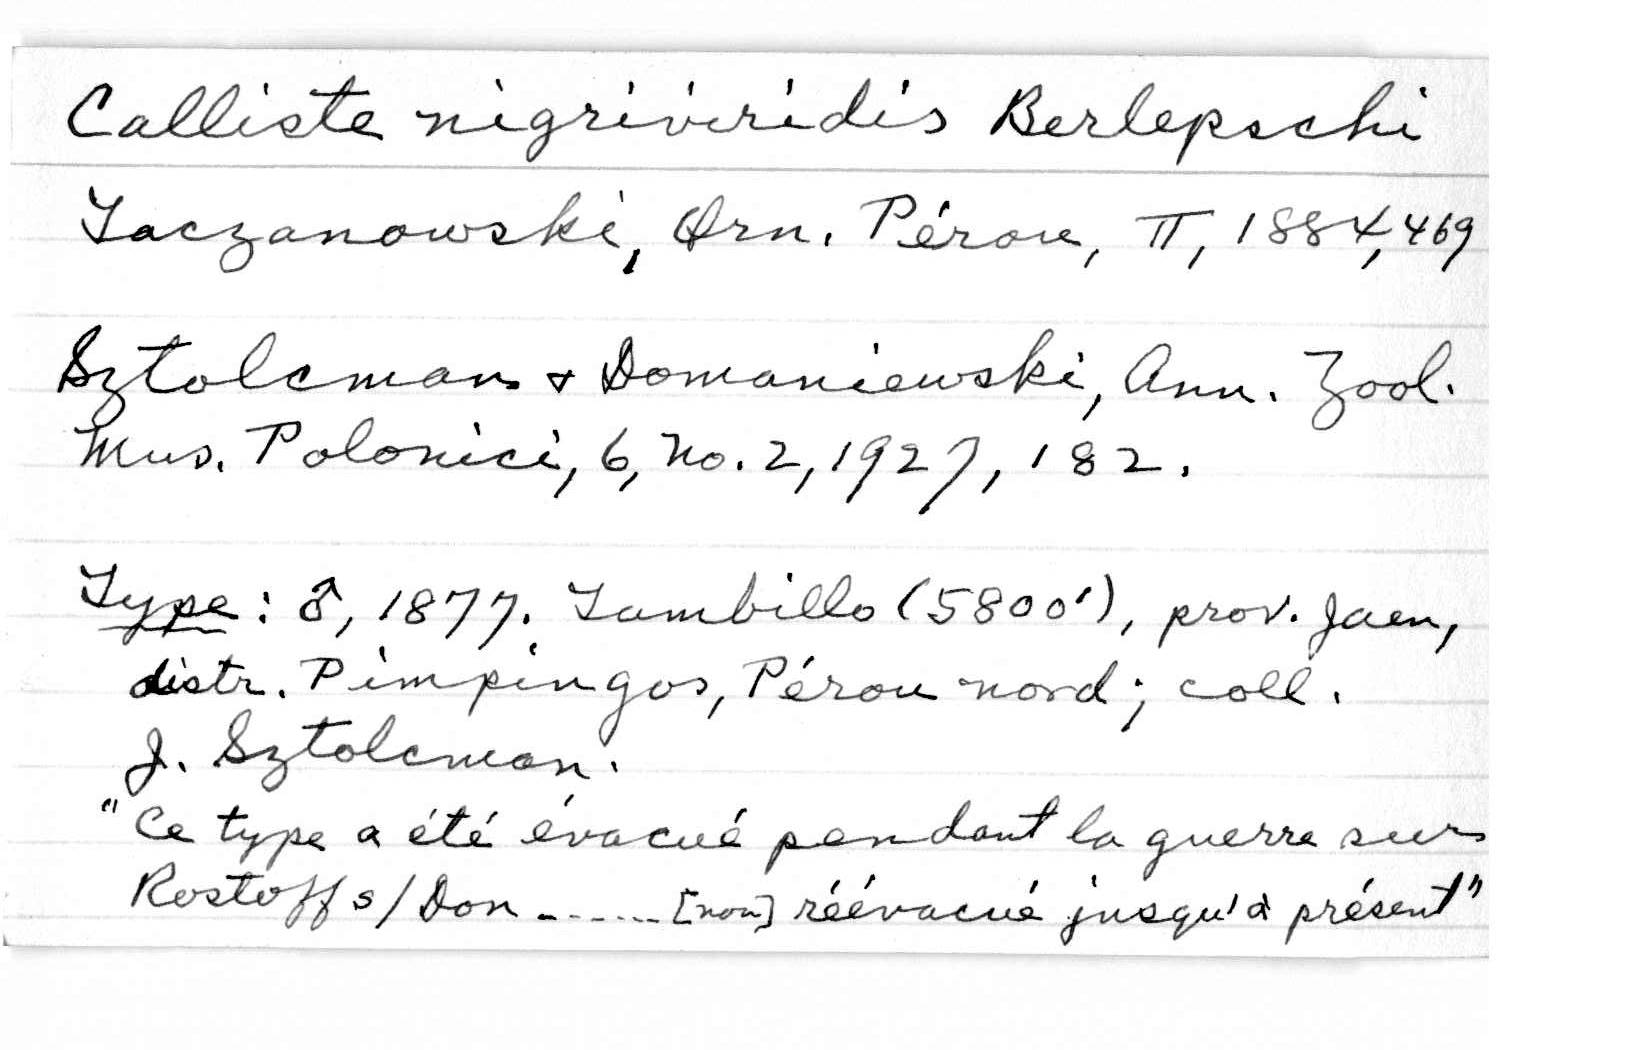 Calliste nigriviridis Berlepschi
Taczanowski, Orn. Pérou, II, 1884, 469
Sztolcman & Domaniewski, Ann. Zool.
Mus. Polonici, 6, No. 2, 1927, 182.
Type: ♂, 1877. Tambillo (5800'), prov. Jaen,
distr. Pimpingos, Pérou nord; coll.
J. Sztolcman.
"Ce type a été évacué pendant la guerre sur
Rostoff s/Don ------ [non] réévacué jusqu'à présent"